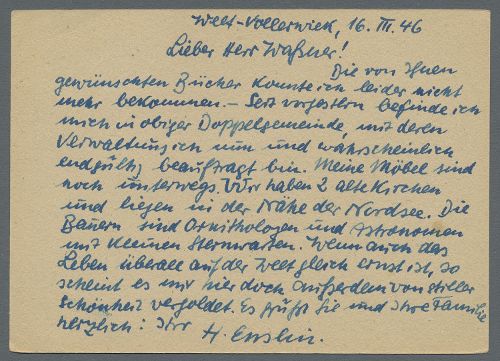 Welt-Vollerwiek, 16. III. 46
Lieber Herr Waßner!
Die von Ihnen
gewünschten Bücher konnte ich leider nicht
mehr bekommen. – Seit vorgestern befinde ich
mich in obiger Doppelgemeinde, mit deren
Verwaltung ich nun und wahrscheinlich
endgültig beauftragt bin. Meine Möbel sind
noch unterwegs. Wir haben 2 alte Kirchen
und liegen in der Nähe der Nordsee. Die
Bauern sind Ornithologen und Astronomen
mit kleinen Sternwarten. Wenn auch das
Leben überall auf der Welt gleich ernst ist, so
scheint es mir hier doch außerdem von stiller
Schönheit vergoldet. Es grüßt Sie und Ihre Familie
herzlich: Ihr
H. Enslin.